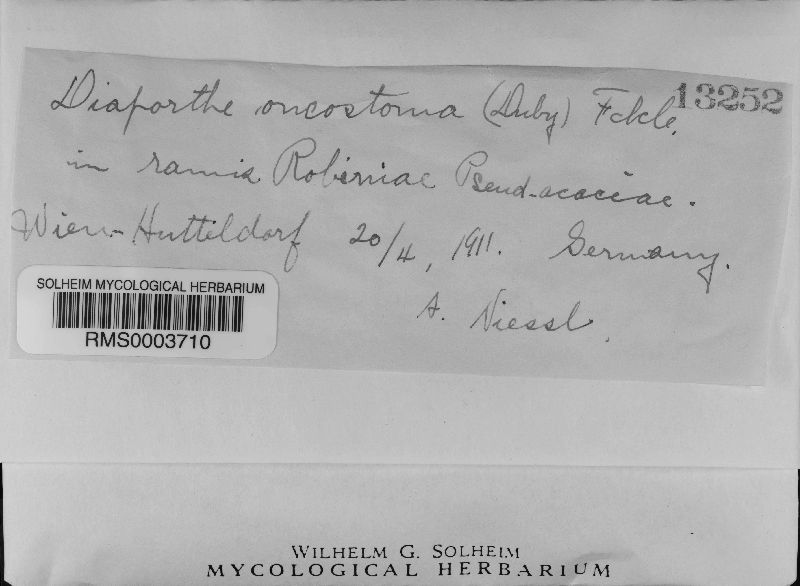 Diaporthe oncostoma (Duby) Fckle. 13252
in ramis Robiniae Pseud-acaciae.
Wien-Hutteldorf 20/4, 1911. Germany.
A. Niessl.
SOLHEIM MYCOLOGICAL HERBARIUM
RMS0003710
WILHELM G. SOLHEIM
MYCOLOGICAL HERBARIUM